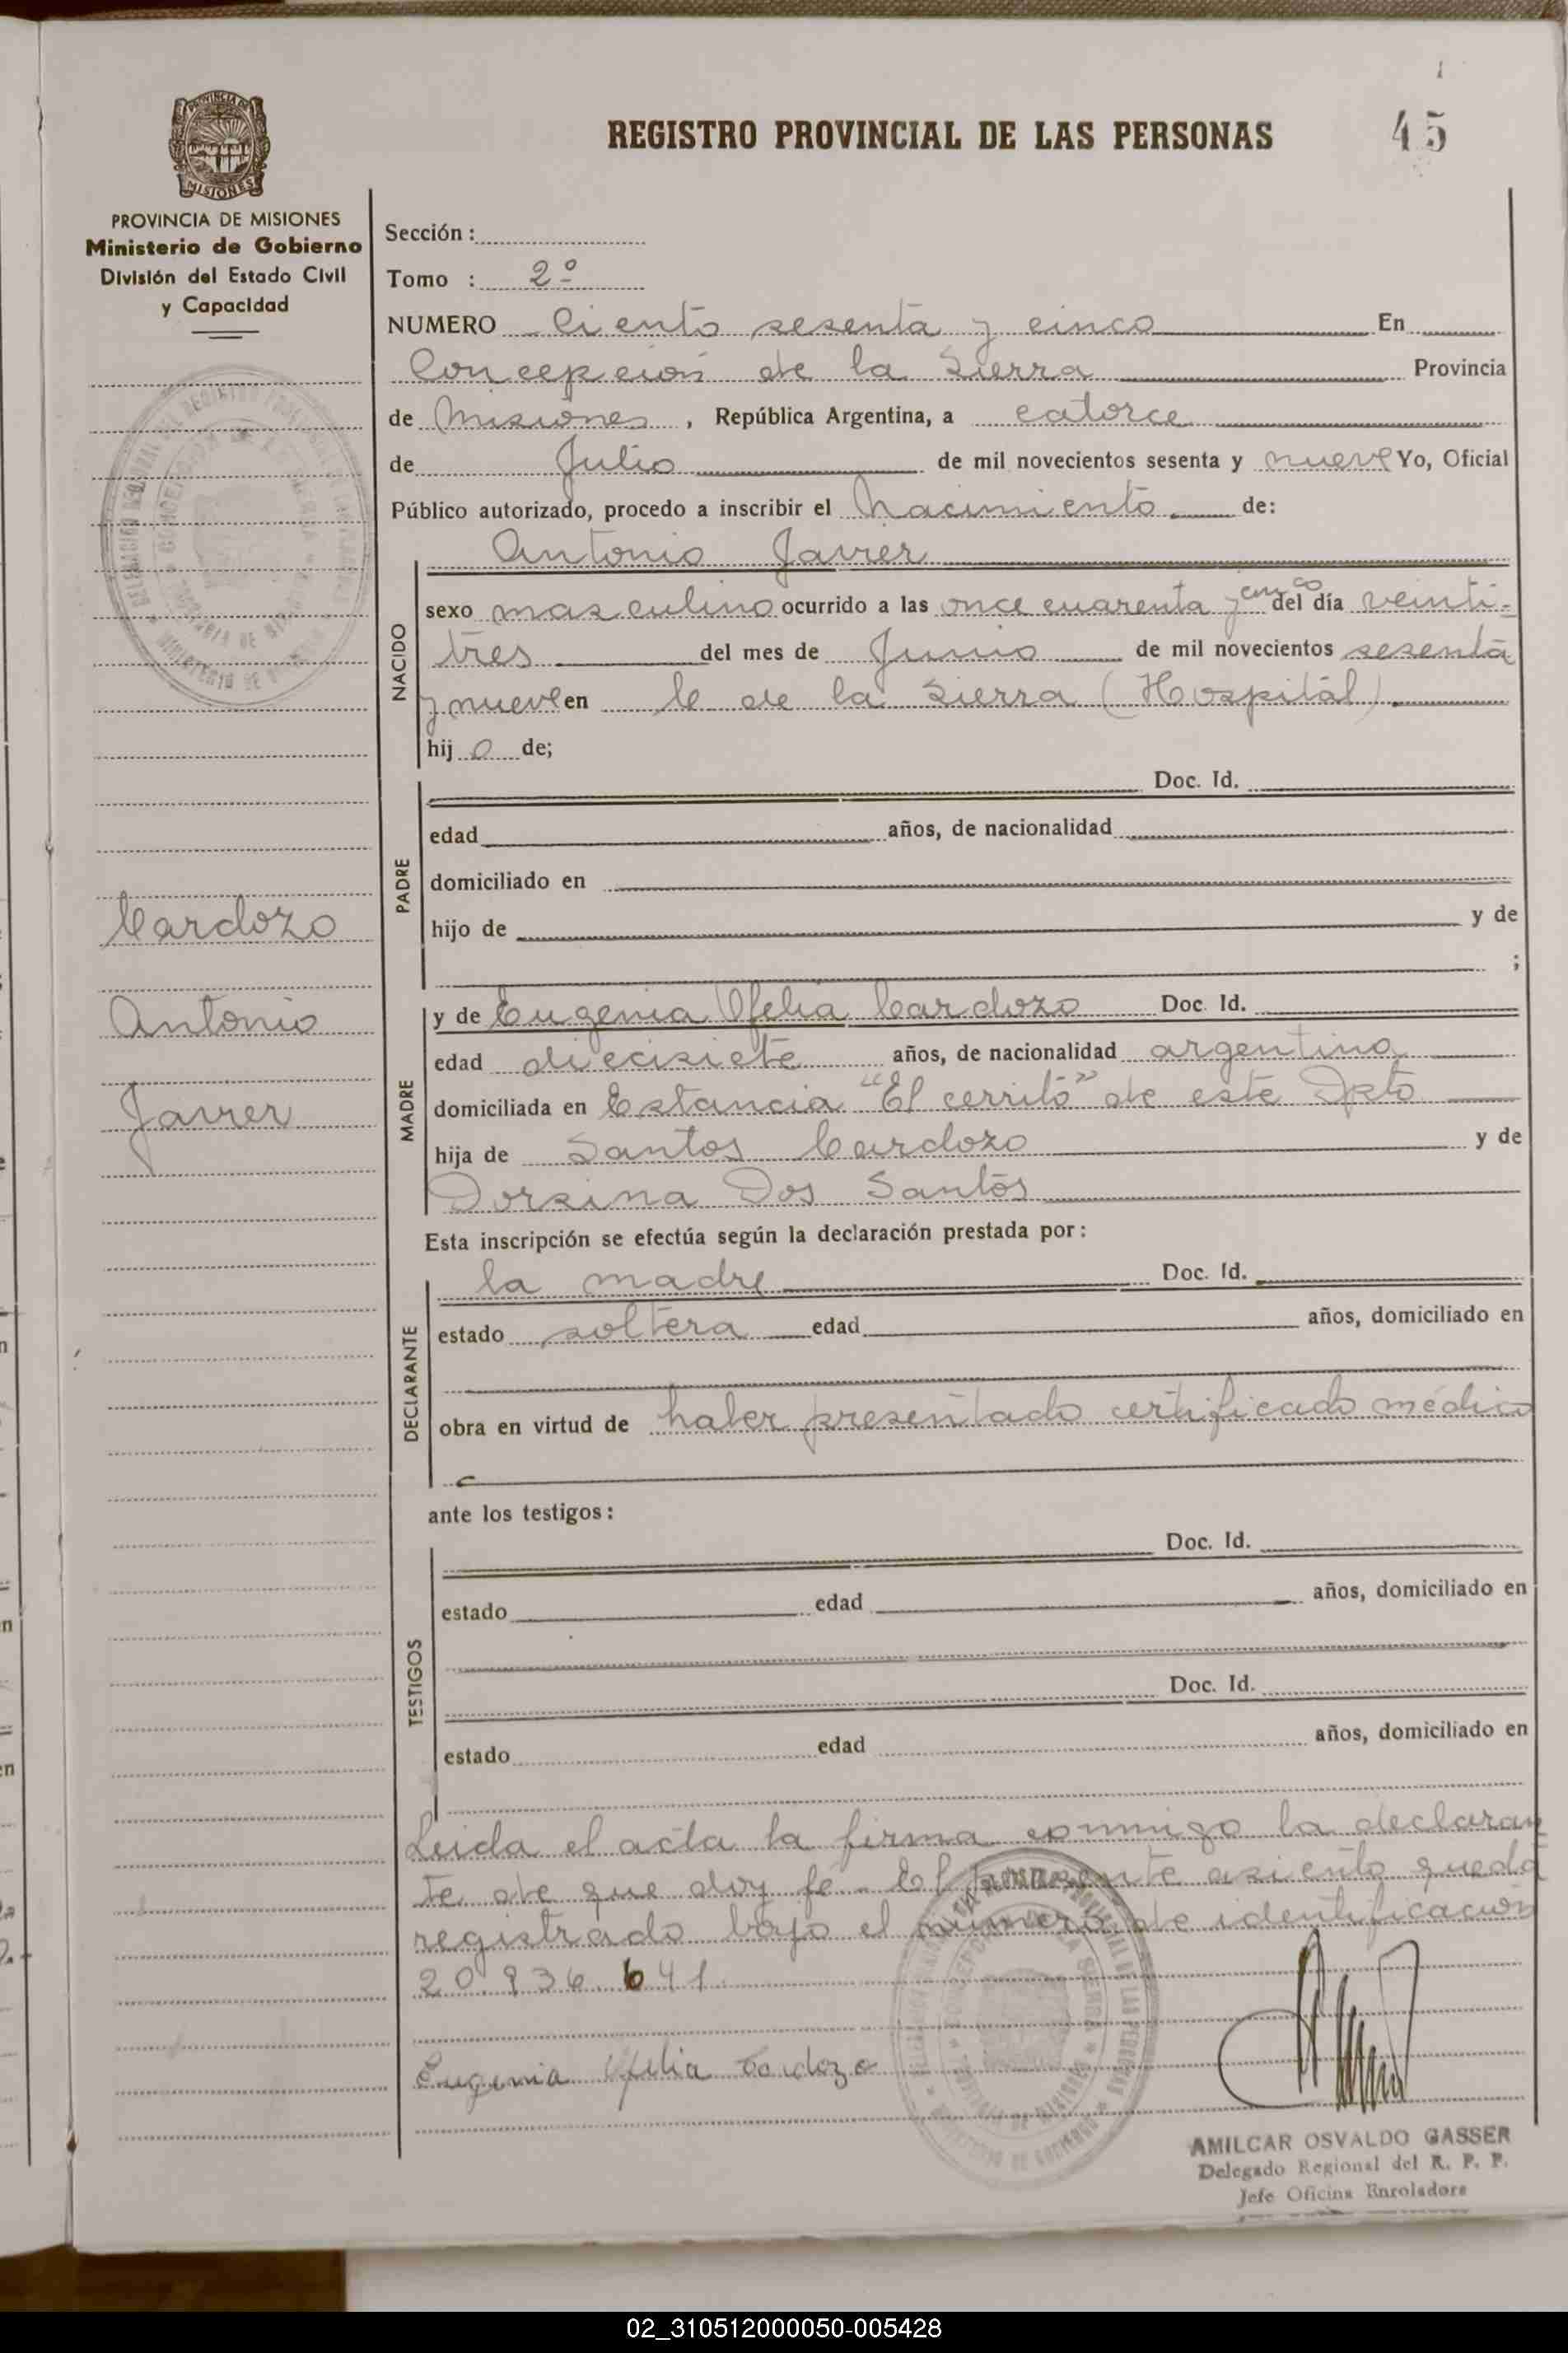 45
REGISTRO PROVINCIAL DE LAS PERSONAS
PROVINCIA DE MISIONES
MISIONES
PROVINCIA DE MISIONES
Ministerio de Gobierno
División del Estado Civil
y Capacidad
Cardozo
Antonio
Javier
Sección :
Tomo : 2º
NUMERO Ciento sesenta y cinco En
Concepción de la Sierra Provincia
de Misiones, República Argentina, a catorce
de Julio de mil novecientos sesenta y nueve Yo, Oficial
Público autorizado, procedo a inscribir el Nacimiento de:
Antonio Javier
NACIDO
sexo masculino ocurrido a las once cuarenta y cinco del día veinti-
tres del mes de Junio de mil novecientos sesenta
y nueve en C de la Sierra (Hospital)
hijo de;
PADRE
Doc. Id.
edad años, de nacionalidad
domiciliado en
hijo de y de
;
MADRE
y de Eugenia Ofelia Cardozo Doc. Id.
edad diecisiete años, de nacionalidad argentina
domiciliada en Estancia "El cerrito" de este Dpto
hija de Santos Cardozo y de
Dorsina Dos Santos
Esta inscripción se efectúa según la declaración prestada por:
DECLARANTE
la madre Doc. Id.
estado soltera edad años, domiciliado en
obra en virtud de haber presentado certificado médico
ante los testigos:
TESTIGOS
Doc. Id.
estado edad años, domiciliado en
Doc. Id.
estado edad años, domiciliado en
Leida el acta la firma conmigo la declaran
te de que doy fé. El presente asiento queda
registrado bajo el número de identificación
20.936.641
Eugenia Ofelia Cardozo
AMILCAR OSVALDO GASSER
Delegado Regional del R. P. P.
Jefe Oficina Enroladora
02_310512000050-005428